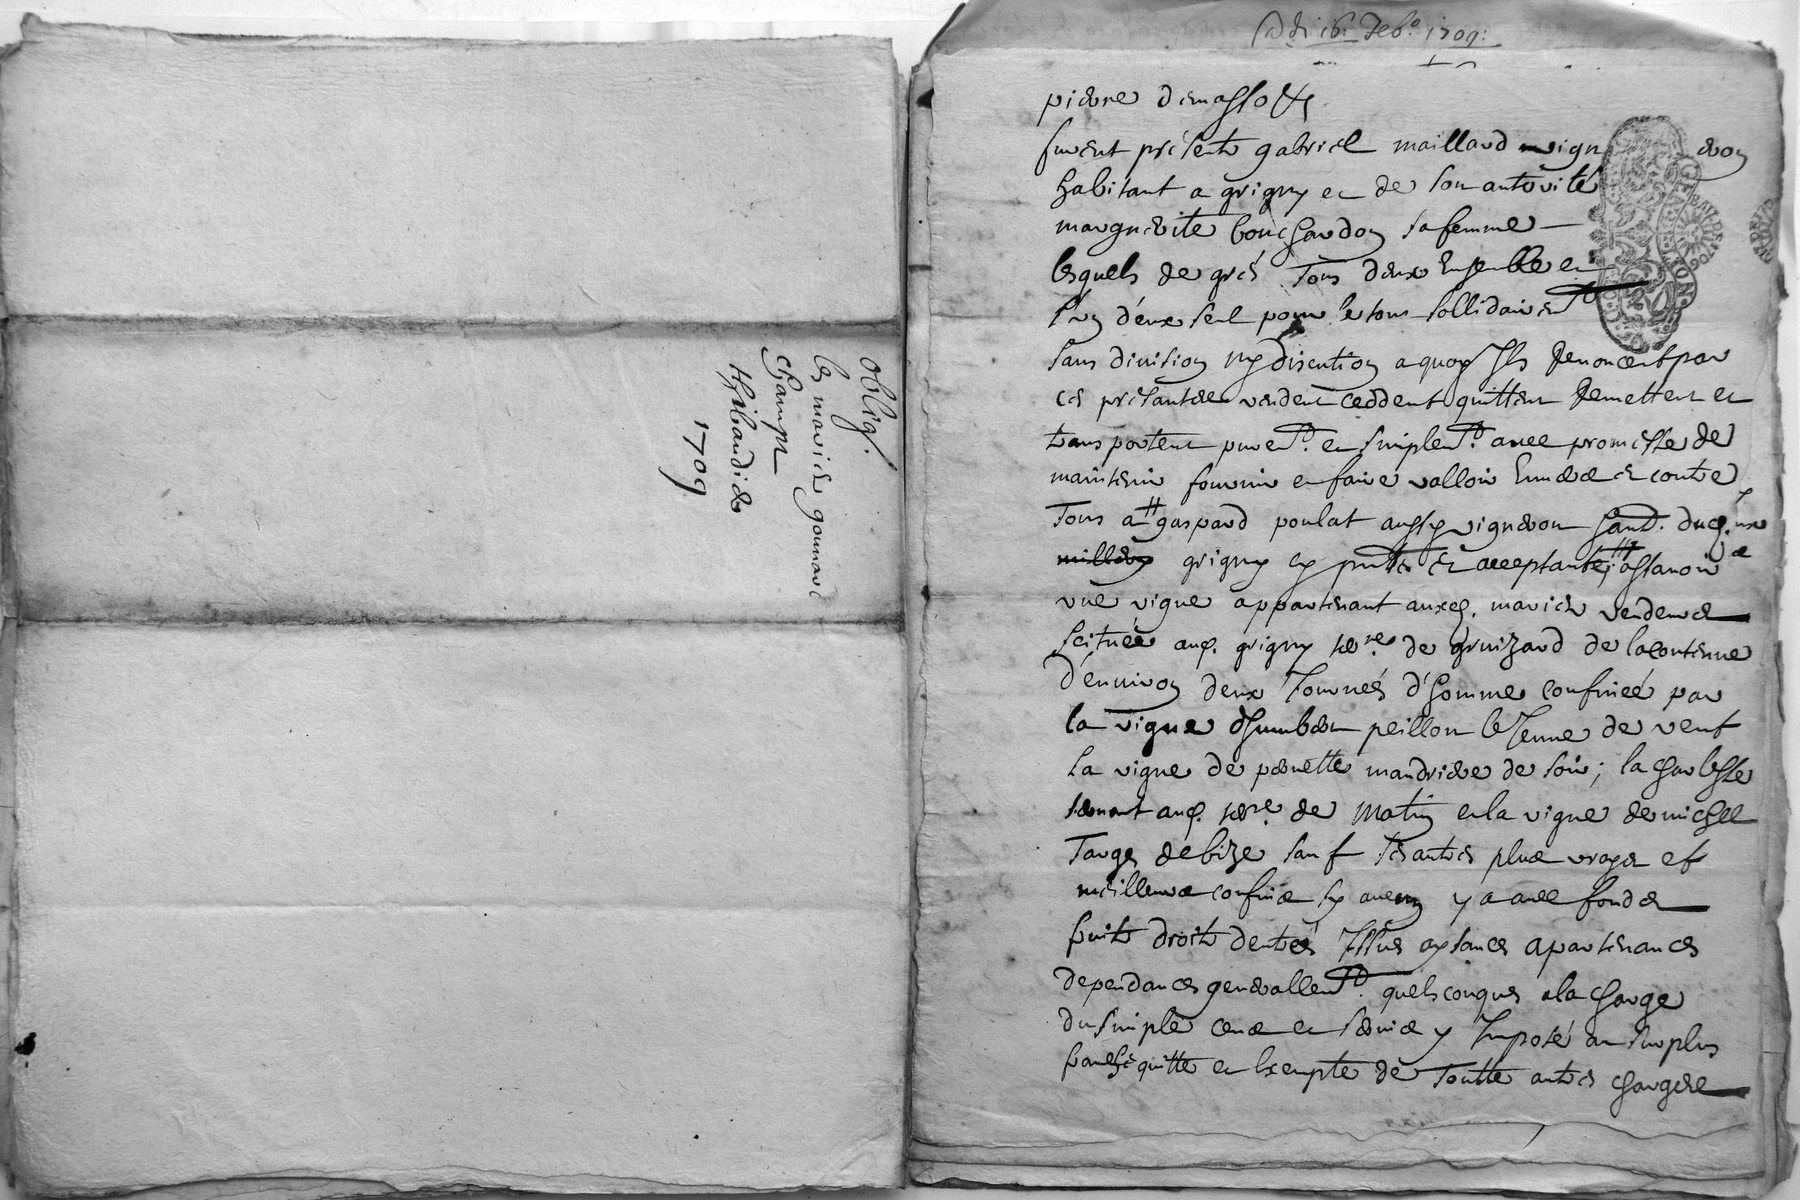 oblig.
les mariés gounard
champt
thibaudier
1709
16 feb.o 1709:
pierre demasso
furent présents gabriel maillard vign eron
habitant a grigny et de son autorité
marguerite bouchardon sa femme
lesquels de gré tous deux ensemble et
l'un d'eux seul pour le tous sollidairemt
sans division ny discution a quoy Ils Renoncent par
ces présantes vendent ceddent quittent Remettent et
transportent puremt. et simplemt. avec promesse de
maintenir fournir et faire valloir Envers et contre
Tous a gaspard poulat aussy vigneron hant. dud. lieux
grigny cy pnt et acceptant assavoir
une vigne appartenant auxd. mariés vendeurs
scituée aud. grigny terre. de gruizard de la contenue
d'environ deux Journées d'homme confinée par
la vigne d'humbert peillon le Jeune de vent
la vigne de pernette mandriere de soir; la charlesse
tenant aud. terre. de matin et la vigne de michel
Targe de bize sauf ses autres plus vrayes et
meilleurs confins sy aucun y a avec fonds
fruits droits dentrées Issues aysances apartenances
dependances generallemt. quelsconques a la charge
du simple cens et servis y Imposé au surplus
franche quitte et Exempte de Toutte autres charges